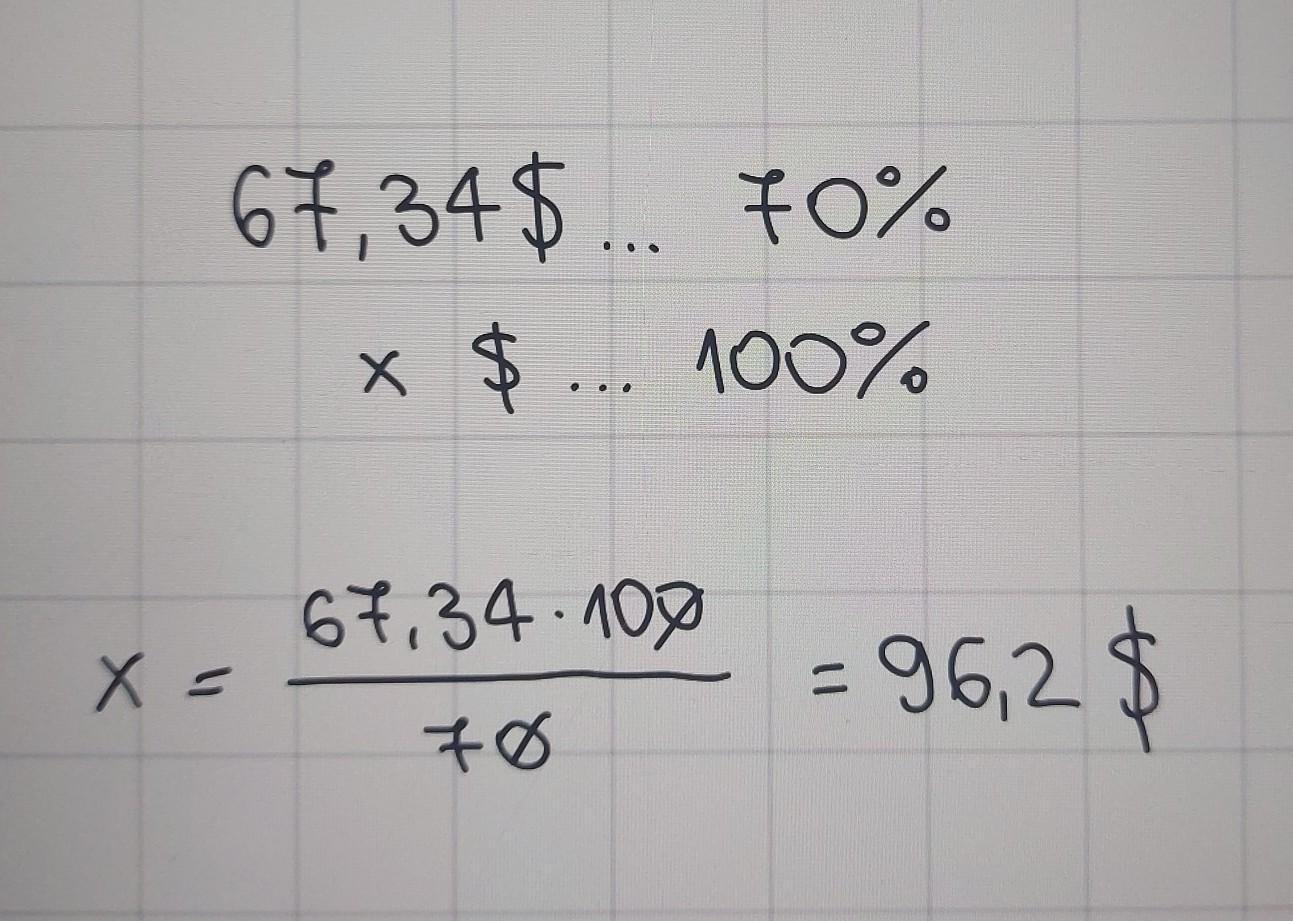 67,34$... 70%
x $... 100%
x = 67,34·100 / 70 = 96,2 $